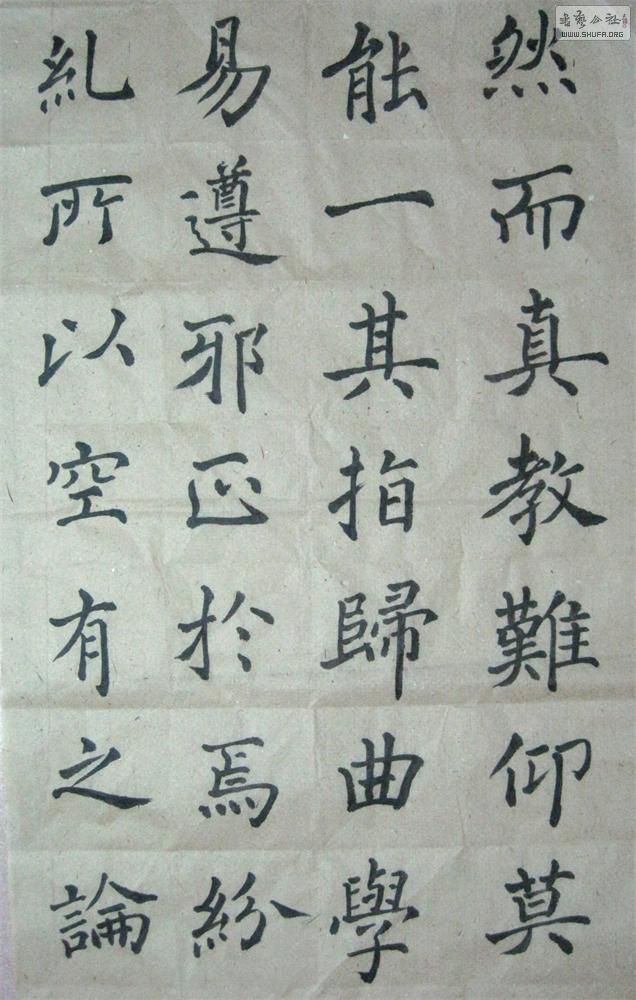 然而真教難仰莫
能一其指歸曲學
易遵邪正於焉紛
糺所以空有之論
WWW.SHUFA.ORG